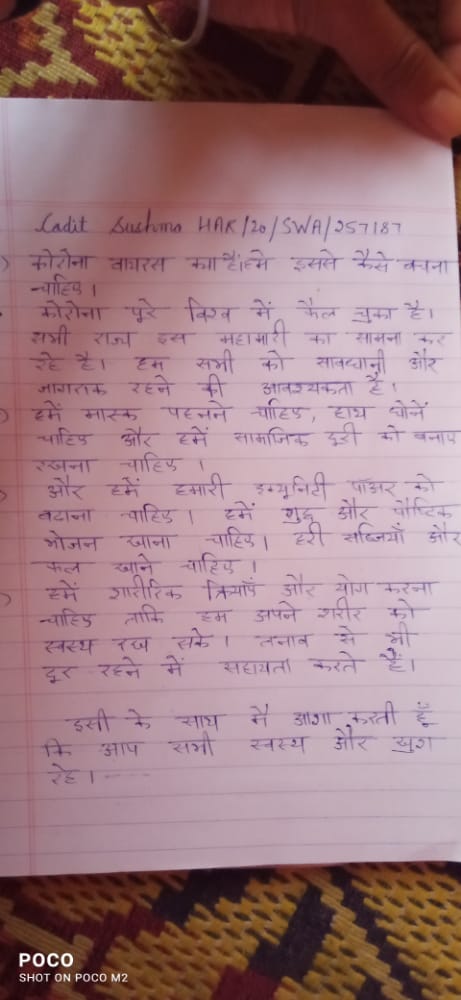 Cadit Sushma HAR/20/SWA/257187
कोरोना वायरस क्या है।हमे इससे कैसे बचना
चाहिए।
कोरोना पूरे विश्व में फैल चुका है।
सभी राज्य इस महामारी का सामना कर
रहे है। हम सभी को सावधानी और
जागरूक रहने की आवश्यकता है।
हमें मास्क पहनने चाहिए, हाथ धोनें
चाहिए और हमें सामाजिक दूरी को बनाए
रखना चाहिए।
और हमें हमारी इम्यूनिटी पॉअर को
बढाना चाहिए। हमें शुद्ध और पौष्टिक
भोजन खाना चाहिए। हरी सब्जियाँ और
फल खाने चाहिए।
हमें शारीरिक क्रियाएँ और योग करना
चाहिए ताकि हम अपने शरीर को
स्वस्थ रख सके। तनाव से भी
दूर रहने में सहायता करते हैं।
इसी के साथ मै आशा करती हूँ
कि आप सभी स्वस्थ और खुश
रहे।
POCO
SHOT ON POCO M2